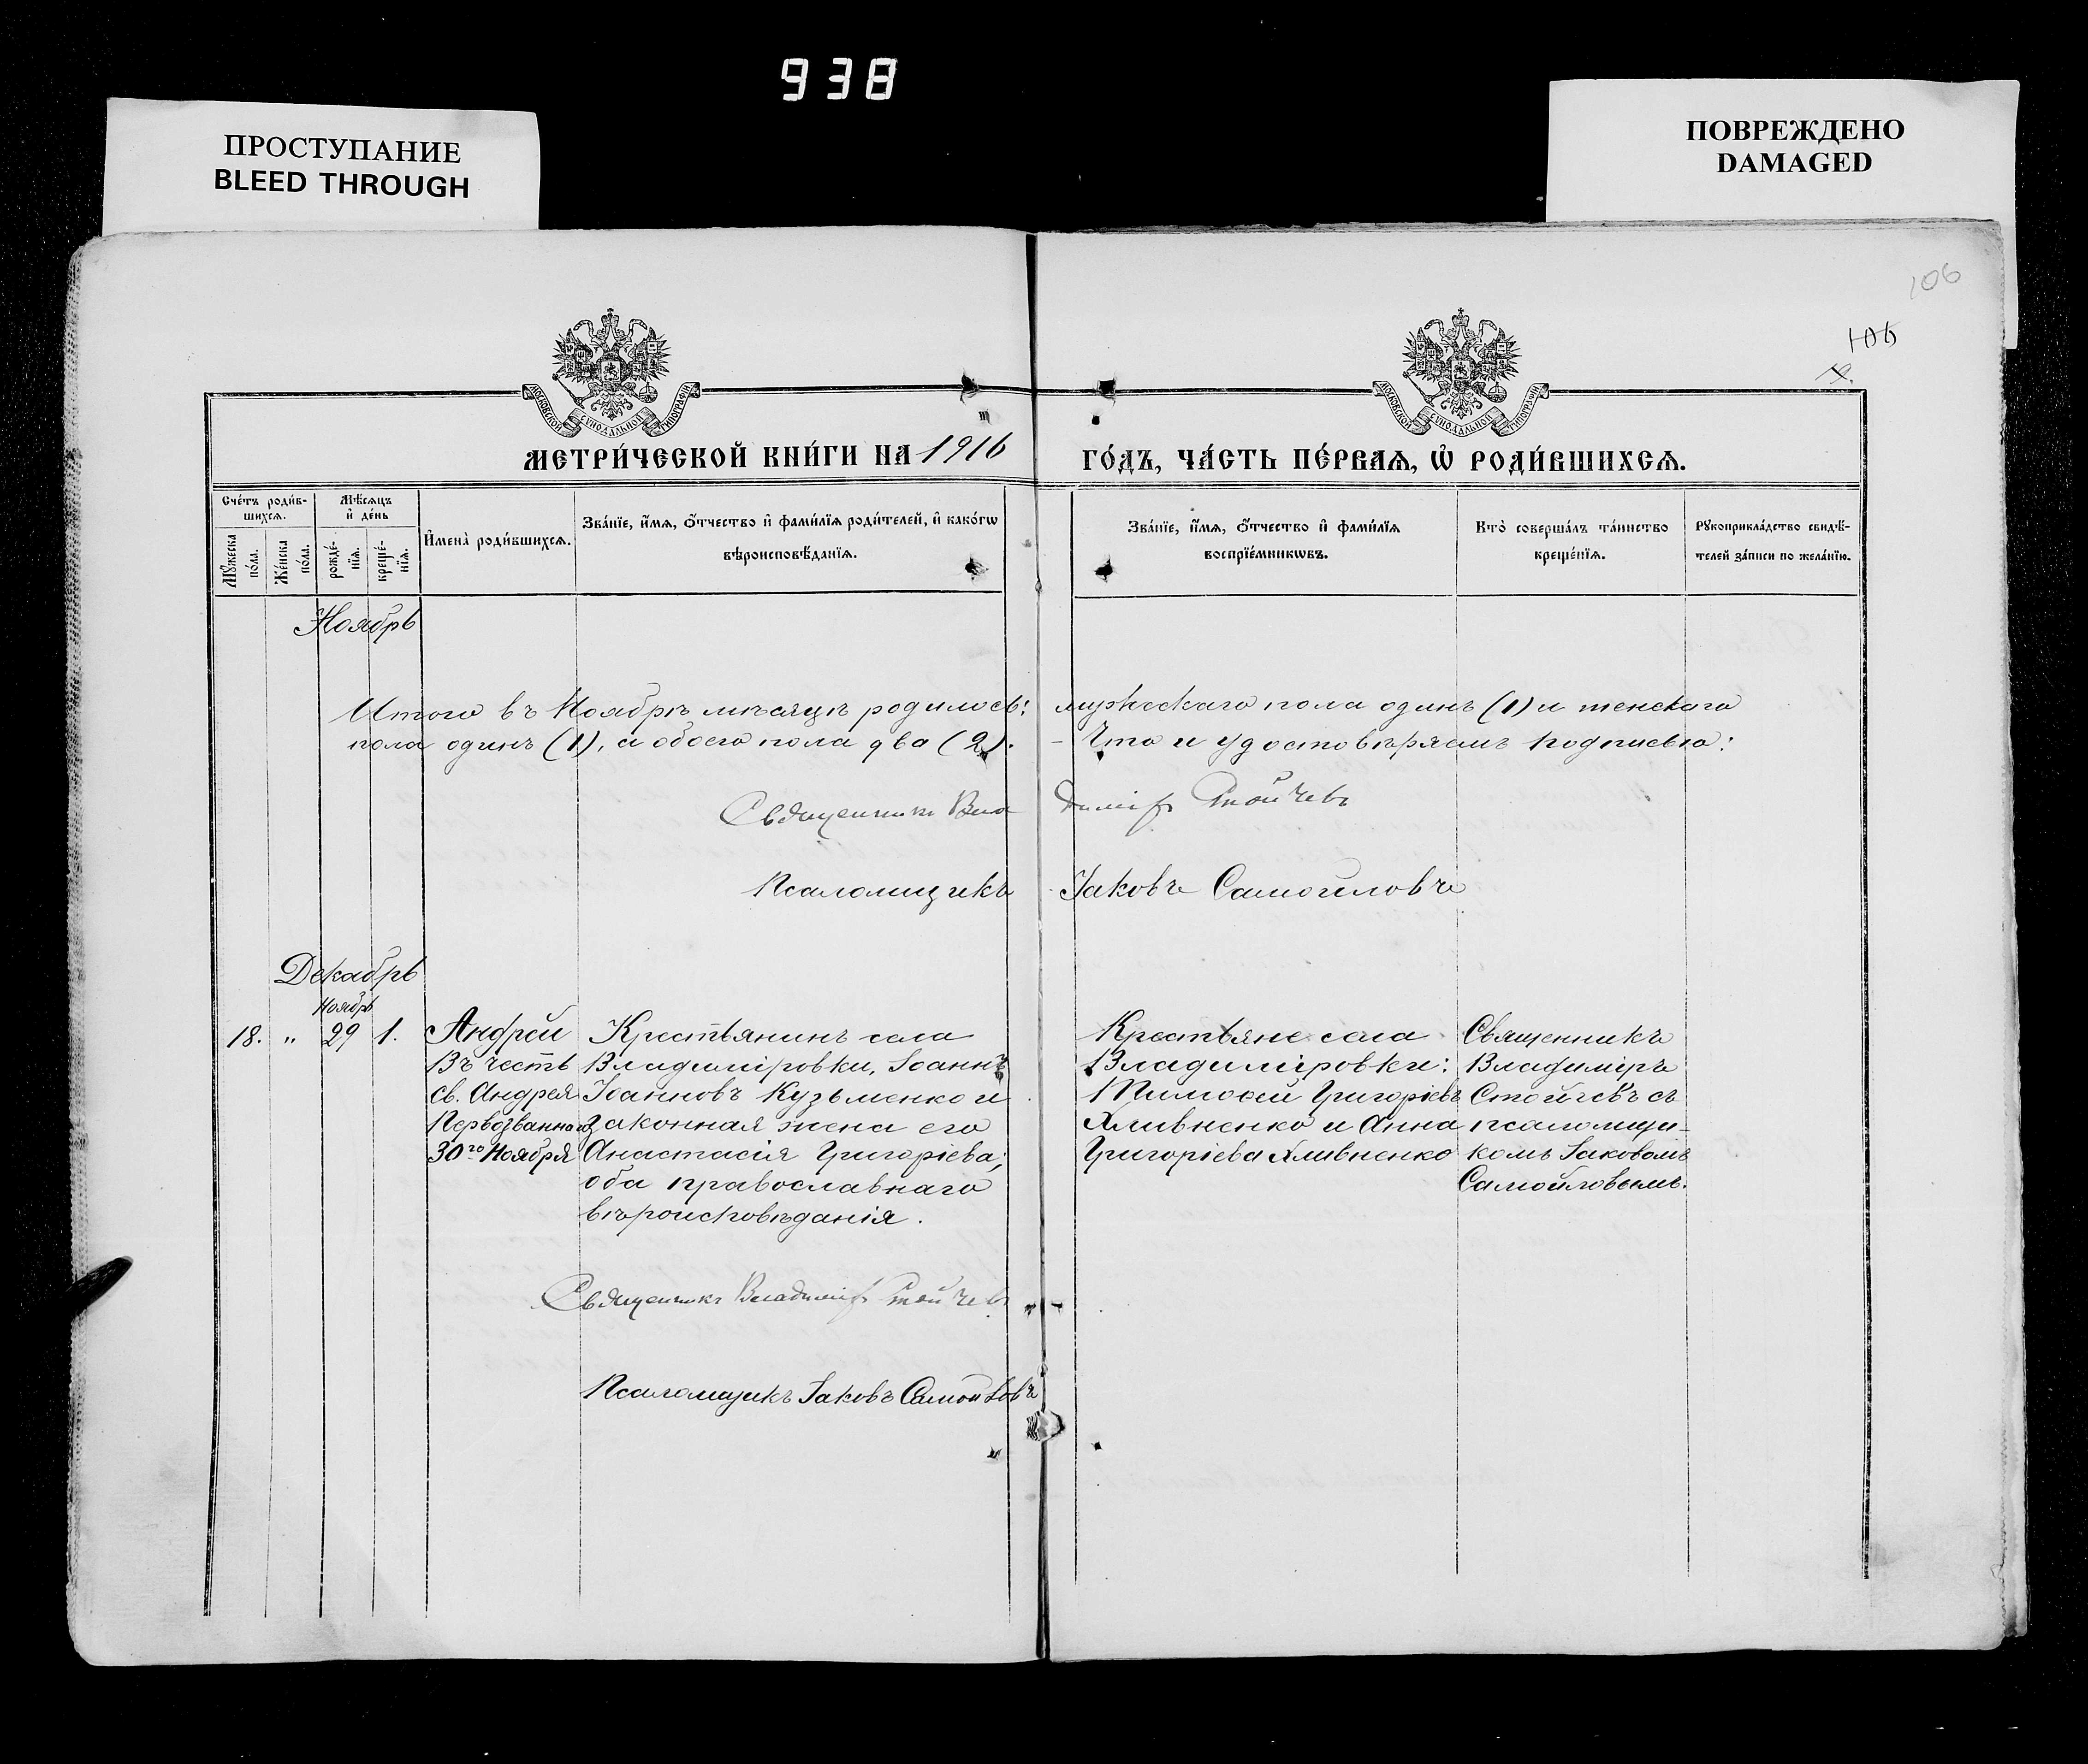 938
ПРОСТУПАНИЕ
BLEED THROUGH
ПОВРЕЖДЕНО
DAMAGED
106
106
МОСКОВСКОЙ СУНОДАЛЬНОЙ ТИПОГРАФІИ
МОСКОВСКОЙ СУНОДАЛЬНОЙ ТИПОГРАФІИ
МЕТРИ́ЧЕСКОЙ КНИ́ГИ НА 1916
ГО́ДЪ, ЧА́СТЬ ПЕ́РВАѦ, Ѡ҆ РОДИ́ВШИХСѦ.
Сче́тъ роди́в-
шихсѧ.
Мꙋ́жеска
по́ла.
Же́нска
по́ла.
Мѣ́сѧцъ
и҆ де́нь
рожде́-
нїѧ.
креще́-
нїѧ.
И҆мена̀ роди́вшихсѧ.
Зва́нїе, и҆́мѧ, ѻ҆́тчество и҆ фами́лїѧ роди́телей, и҆ како́гѡ
вѣроисповѣ́данїѧ.
Зва́нїе, и҆́мѧ, ѻ҆́тчество и҆ фами́лїѧ
воспрїе́мникѡвъ.
Кто̀ соверша́лъ та́инство
креще́нїѧ.
Рꙋкоприкла́дство свидѣ́-
телей за́писи по жела́нїю.
Ноябрь
Итого въ Ноябрѣ мѣсяцѣ родилось: мужескаго пола одинъ (1) и женскаго
пола одинъ (1), а обоего пола два (2). - Что и удостовѣряемъ подписью:
Священникъ Владиміръ Стойчевъ
Псаломщикъ Іаковъ Самойловъ
Декабрь
Ноябрь
18. " 29 1.
Андрей
Въ честь
св. Андрея
Первозваннаго
30го Ноября
Крестьянинъ села
Владиміровки, Іоаннъ
Іоанновъ Кузьменко и
законная жена его
Анастасія Григоріева;
оба православнаго
вѣроисповѣданія.
Крестьяне села
Владиміровки:
Тимоѳей Григоріевъ
Хливненко и Анна
Григоріева Хливненко
Священникъ
Владиміръ
Стойчевъ съ
псаломщи-
комъ Іаковомъ
Самойловымъ.
Священникъ Владиміръ Стойчевъ
Псаломщикъ Іаковъ Самойловъ